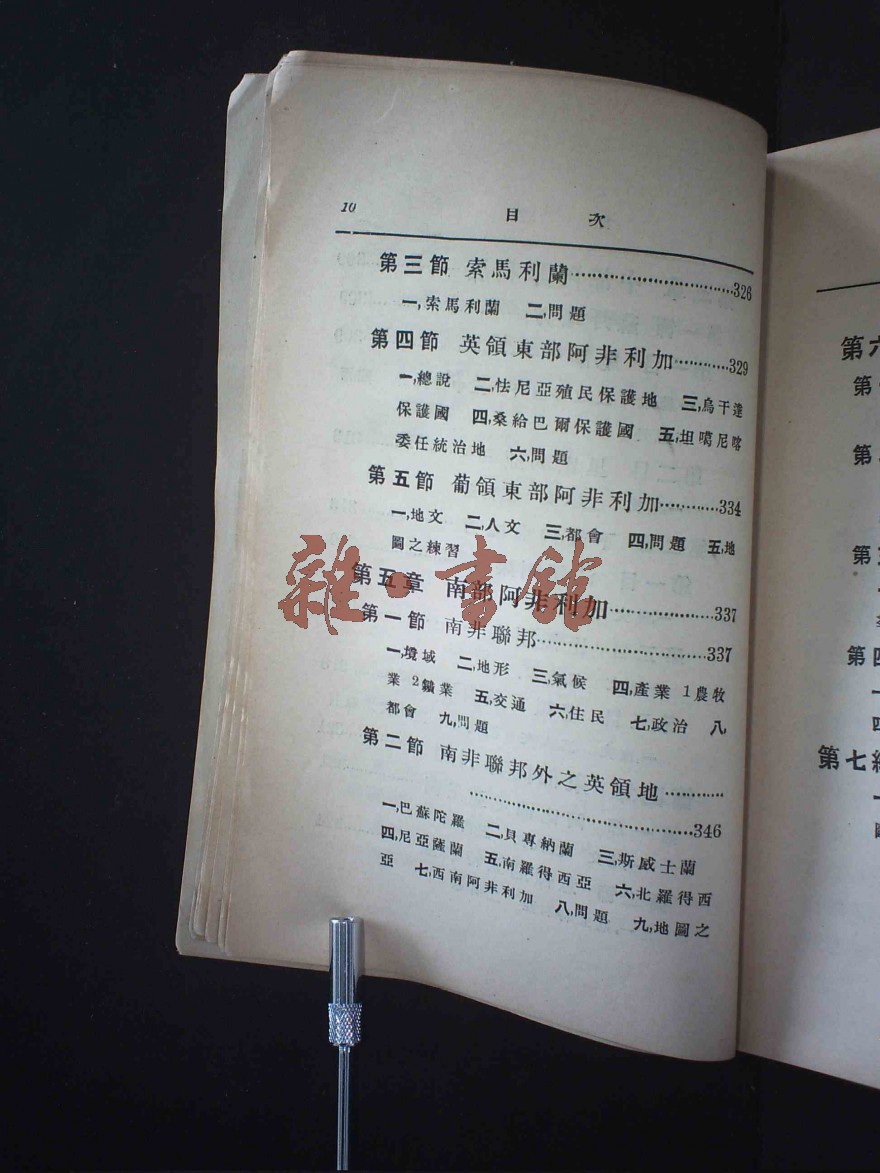 10 目次
第三節 索馬利蘭……………………………326
一,索馬利蘭 二,問題
第四節 英領東部阿非利加…………329
一,總說 二,怯尼亞殖民保護地 三,烏干達
保護國 四,桑給巴爾保護國 五,坦噶尼喀
委任統治地 六,問題
第五節 葡領東部阿非利加…………334
一,地文 二,人文 三,都會 四,問題 五,地
圖之練習
第五章 南部阿非利加…………………337
第一節 南非聯邦……………………………337
一,境域 二,地形 三,氣候 四,產業 1農牧
業 2鑛業 五,交通 六,住民 七,政治 八,
都會 九,問題
第二節 南非聯邦外之英領地…………
……………………………………346
一,巴蘇陀羅 二,貝專納蘭 三,斯威士蘭
四,尼亞薩蘭 五,南羅得西亞 六,北羅得西
亞 七,西南阿非利加 八,問題 九,地圖之
雜·書館
第六
第
第
第
第四
四
第七